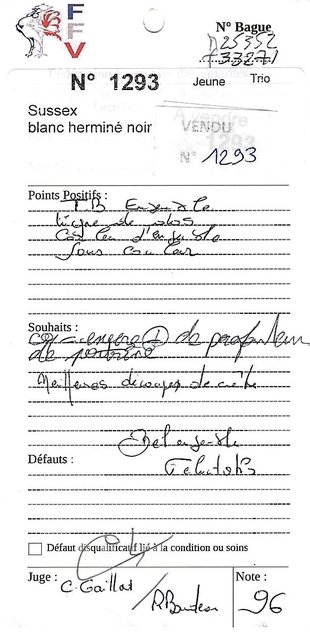 FFV
N° Bague
25352
33271
N° 1293
Jeune
Trio
Sussex
blanc herminé noir
A vendre
1293
VENDU
N° 1293
Points Positifs :
TB Ensemble
ligne de dos
Couleur d'ensemble
Sous couleur
Souhaits :
coq = encore 1 de profondeur
de poitrine
Meilleures découpes de crête
Bel ensemble
Défauts :
Félicitations
Défaut disqualificatif lié à la condition ou soins
Juge :
C. Gaillot
Note :
96